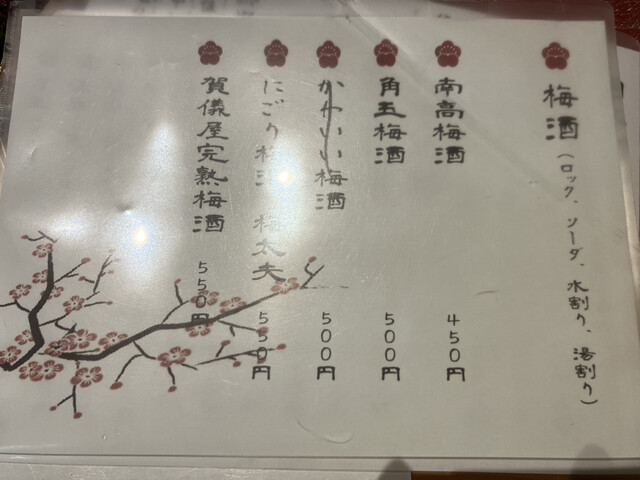 梅酒(ロック、ソーダ、水割り、湯割り)
南高梅酒 450円
角玉梅酒 500円
かわいい梅酒 500円
にごり梅酒 梅太夫 550円
賀儀屋完熟梅酒 550円